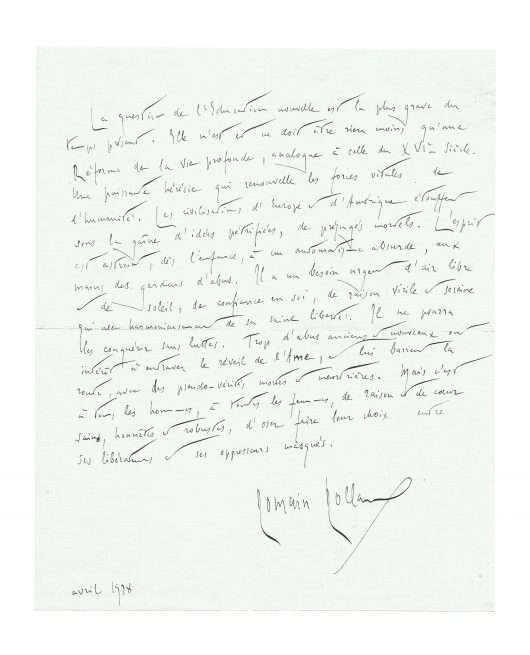 La question de l'Education nouvelle est la plus grave du
temps présent. Elle n'est et ne doit être rien moins qu'une
Réforme de la vie profonde, analogue à celle du XVIe Siècle.
Une puissante hérésie qui renouvelle les forces vitales de
l'humanité. Les civilisations d'Europe et d'Amérique étouffent
sous la gaîne d'idées pétrifiées, de préjugés mortels. L'esprit
est astreint, dès l'enfance, à un automatisme absurde, aux
mains des gardiens d'abus. Il a un besoin urgent d'air libre
et de soleil, de confiance en soi, de raison virile et sereine
qui use harmonieusement de sa saine liberté. Il ne pourra
les conquérir sans luttes. Trop d'abus anciens et nouveaux ont
intérêt à entraver le réveil de l'Ame, et lui barrent la
route, avec des pseudo-vérités mortes et meurtrières. Mais c'est
à tous les hommes, à toutes les femmes, de raison et de cœur
sains, honnêtes et robustes, d'oser faire leur choix entre
ses libérateurs et ses oppresseurs masqués.
Romain Rolland
avril 1928